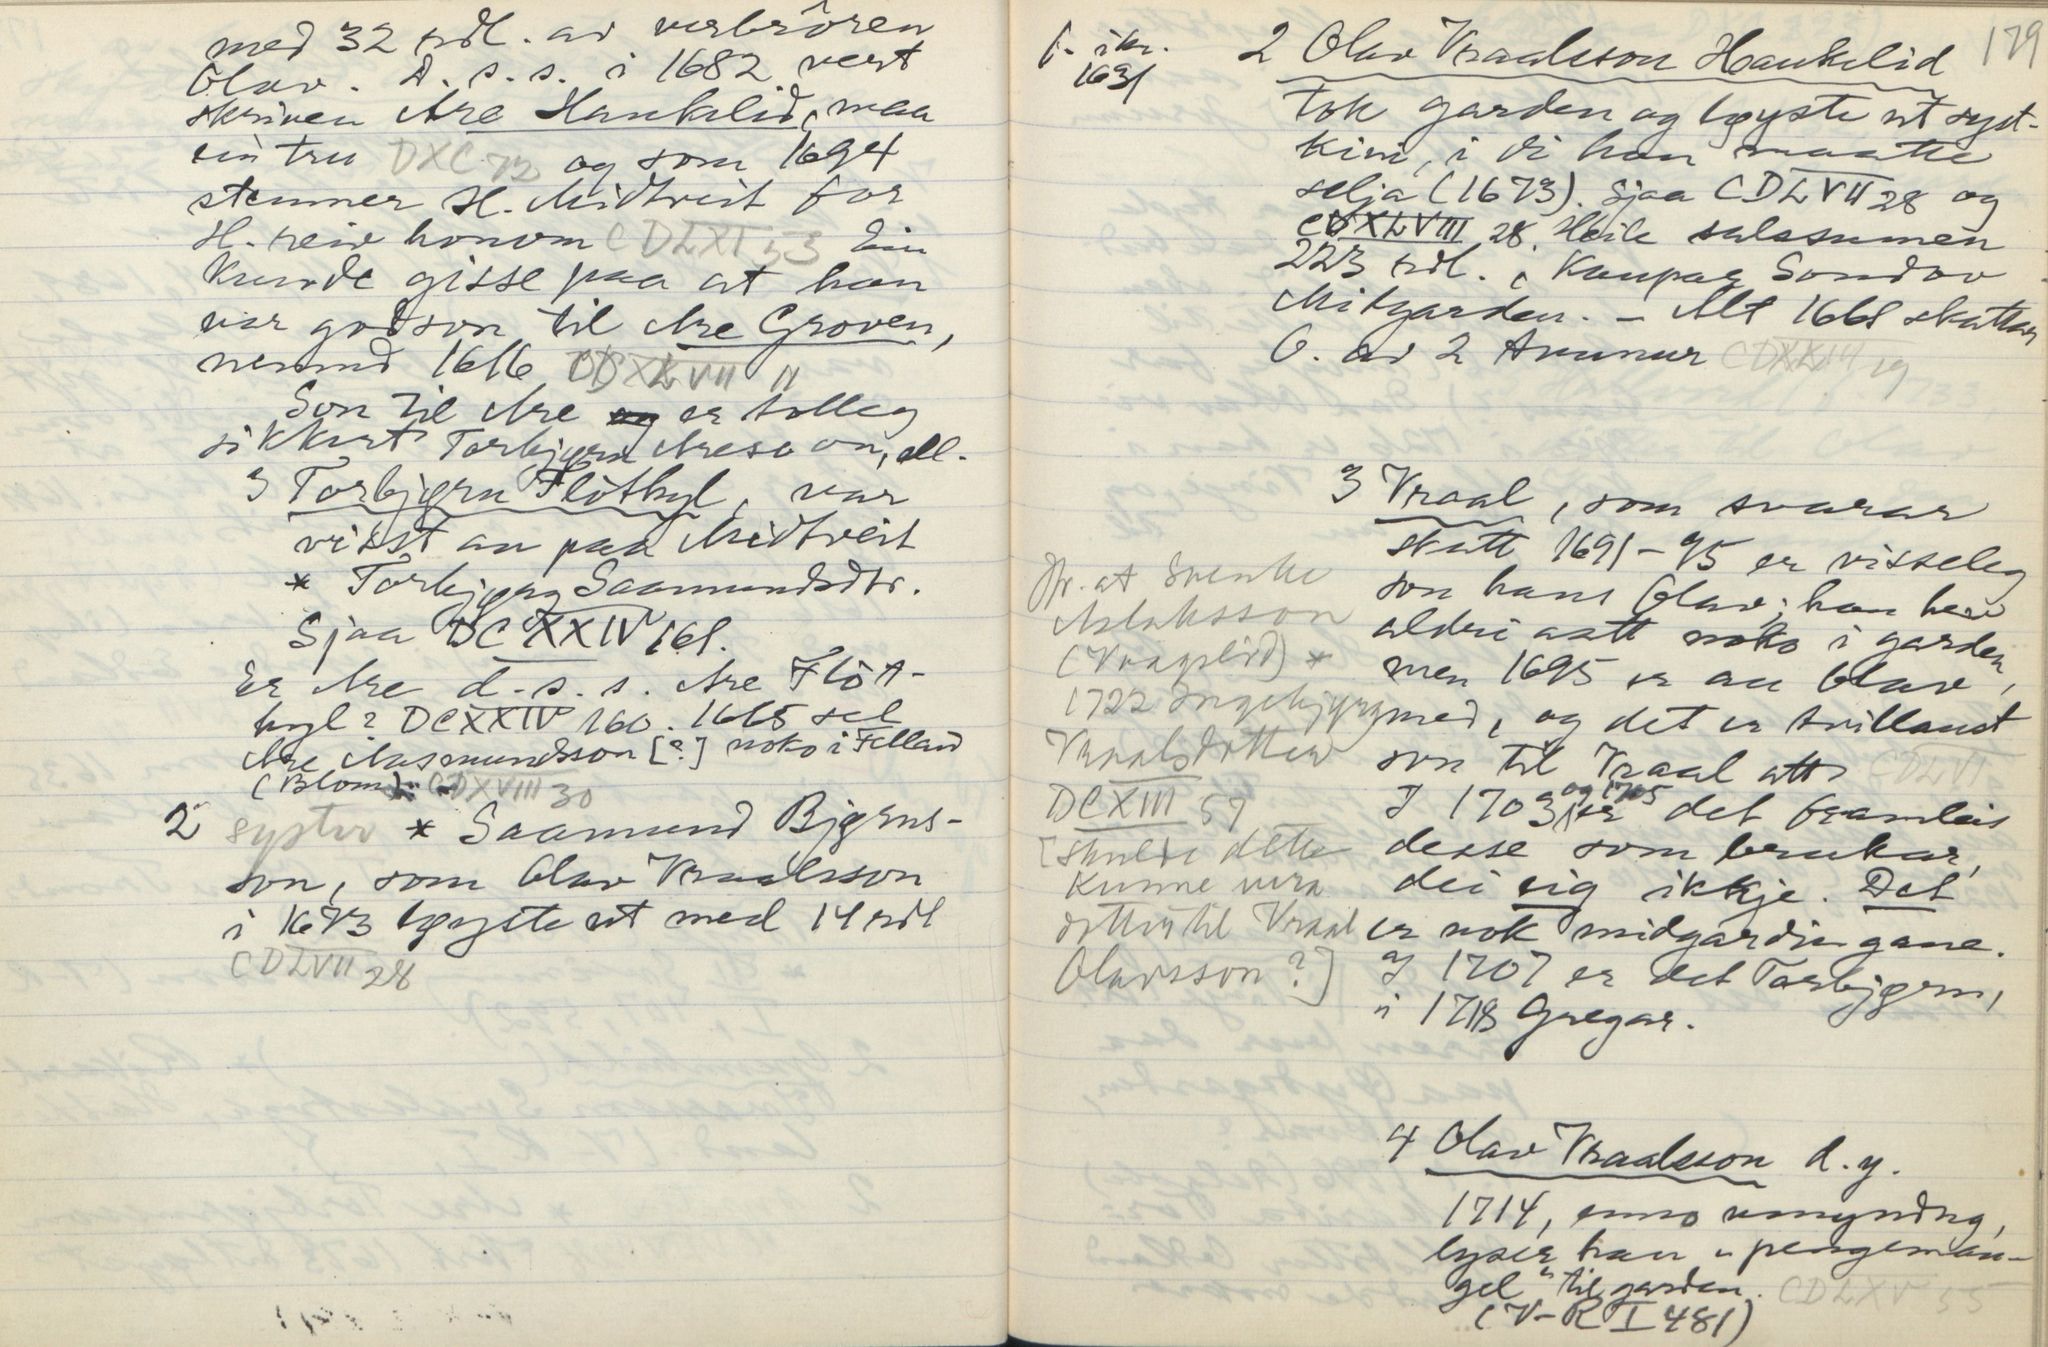 med 32 rdl. av verbrören
Olav. D. s. s. i 1682 vert
skriven Are Haukelid, maa
ein tru DXC 72 og som 1694
stemner H. Midtveit for
H. reiv honom CDLXI 53 Ein
kunde gisse paa at han
var godson til Are Groven,
nemnd 1616 DDXLVII 11
Son til Are er tolleg
sikkert Torbjørn Areson, all.
3 Torbjørn Flötbyl, var
visst an paa Midtveit
* Torbjørg Saamundsdtr.
Sjaa DCXXIV 161.
Er Are d. s. s. Are Flöt-
byl? DCXXIV 160. 1665 sel
Are Aasmundsson [?] noko i Felland
(Blom) CDXVIII 30
2 syster * Saamund Bjørns-
son, som Olav Vraalsson
i 1673 løyste ut med 14 rdl
CDLVII 28
179
f. ikr.
1631
2 Olav Vraalsson Haukelid
tok garden og løyste ut syst-
kini, i di han maatte
selja (1673). Sjaa CDLVII 28 og
CDXLVIII 28. Heile salssumen
223 rdl. i Kaupar Sondov
Mitgarden. - Alt 1668 skattar
O. av 2 tunnur CDXXIII 19
3 Vraal, som svarar
skatt 1691-95 er visseleg
son hans Olav; han hev
aldri aatt noko i garden,
men 1695 er au Olav
med, og det er truillaust
son til Vraal att CDLVI
I 1703 og 1705 er det framleis
desse som brukar,
dei eig ikkje. Det
er nok midgardingane.
I 1707 er det Torbjørn,
i 1718 Gregar.
Hr. at Svenke
Aslaksson
(Vaagslid) *
1722 Ingebjørg
Vraalsdotter
DCXIII 57
[Skulde dette
kunne vera
dotter til Vraal
Olavsson?]
4 Olav Vraalsson d. y.
1714, enno umyndug,
lyser han "pengeman-
gel" til garden. CDLXV 55
(V-R I 481)